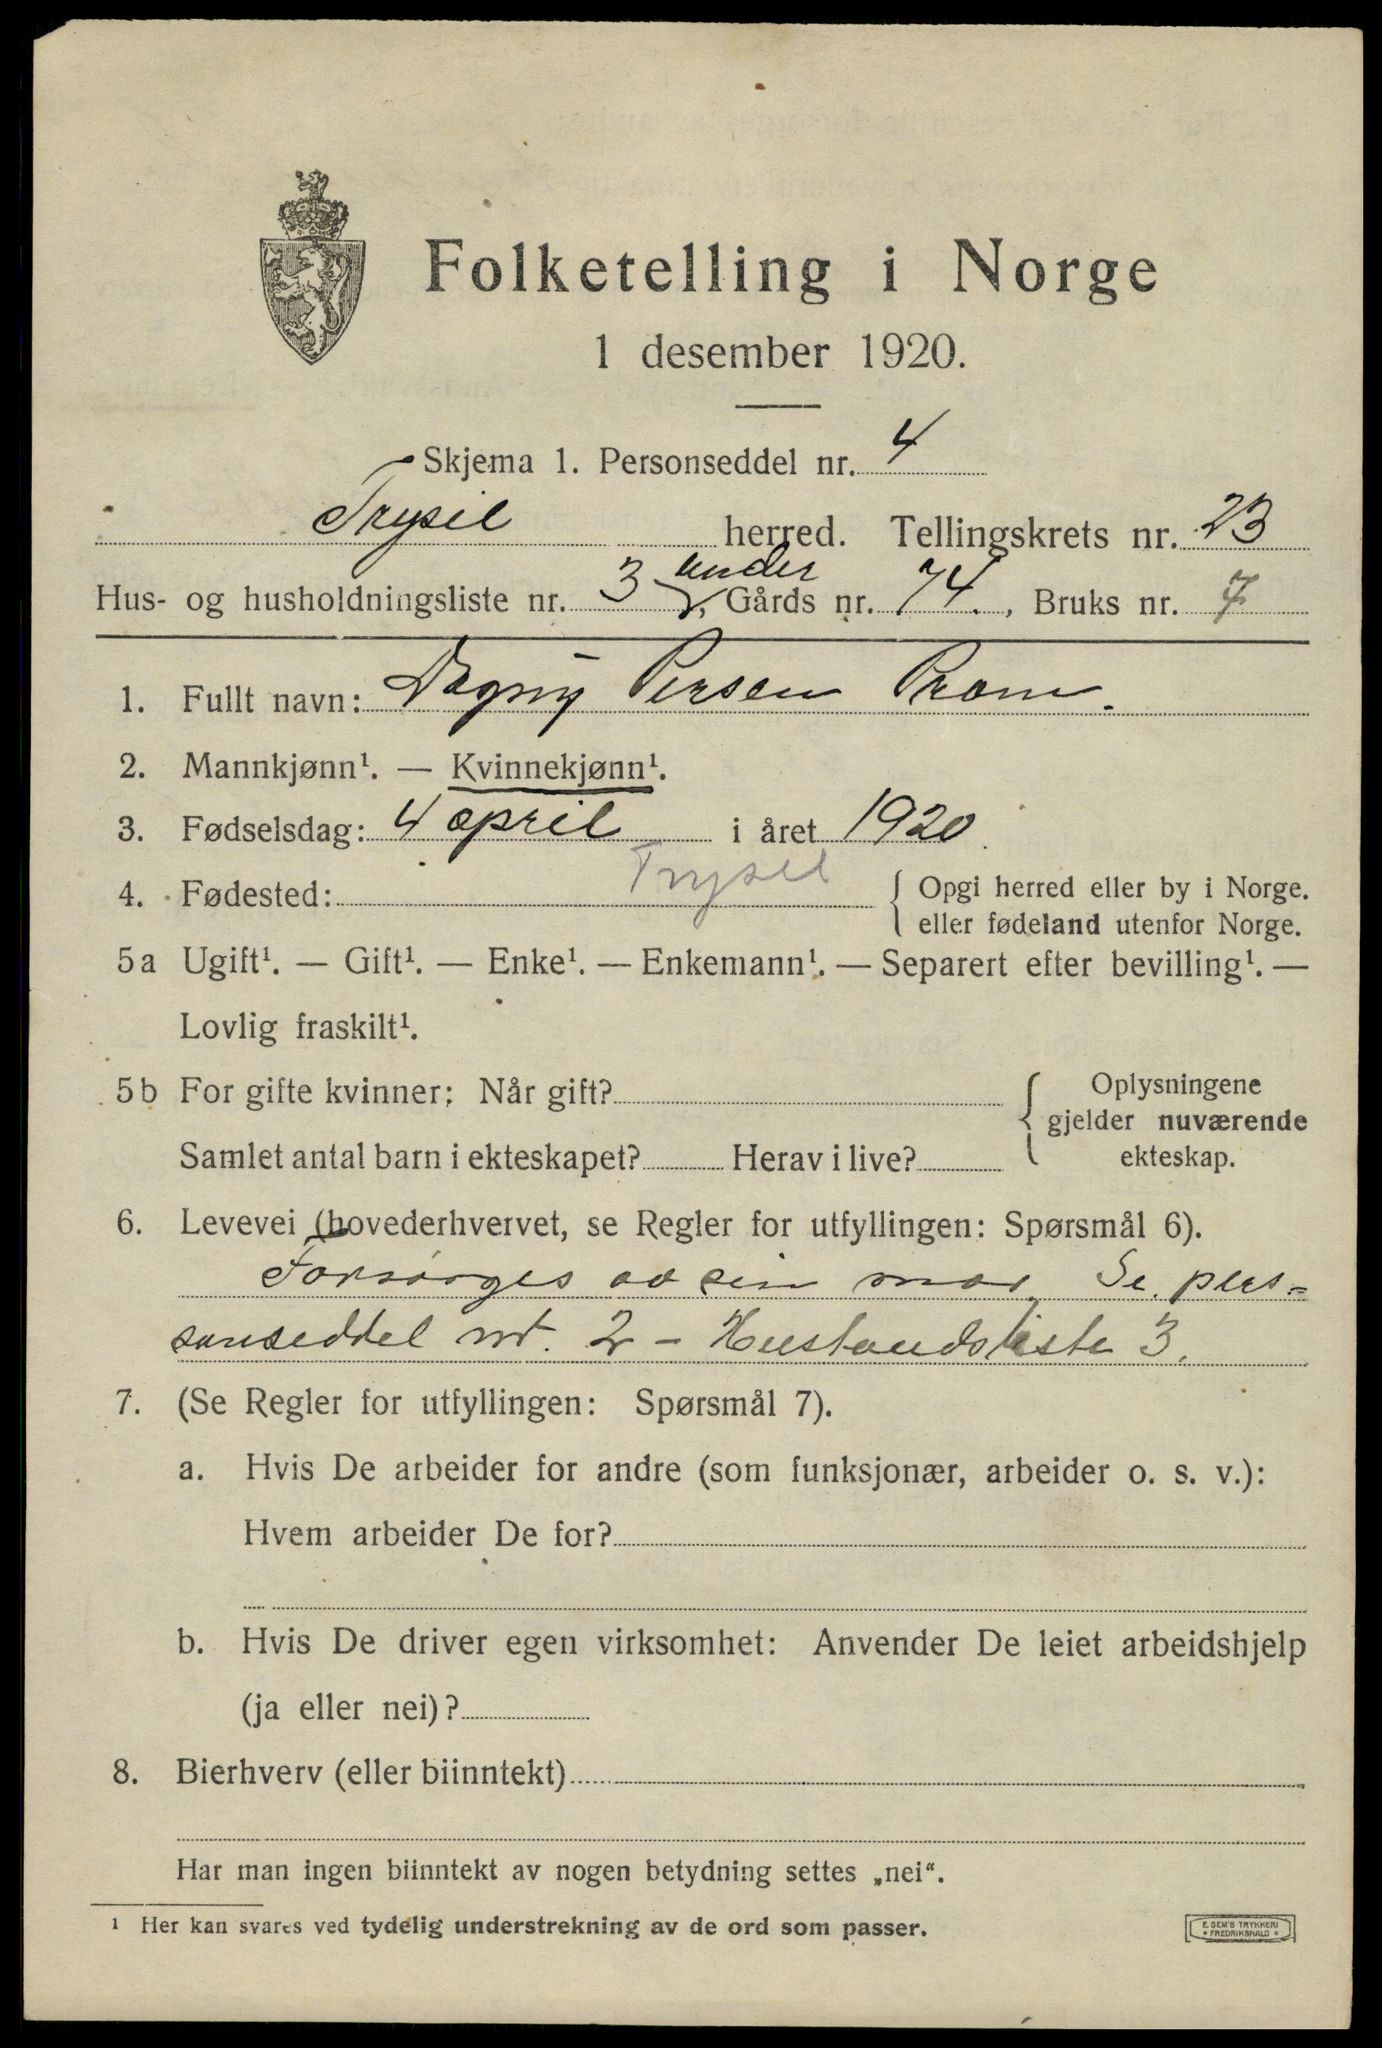 Folketelling i Norge
1 desember 1920.
Skjema 1. Personseddel nr. 4
Trysil herred. Tellingskrets nr. 23
under
Hus- og husholdningsliste nr. 3, Gårds nr. 74., Bruks nr. 7
1. Fullt navn: Dagny Persen
2. Mannkjønn¹. — Kvinnekjønn¹.
3. Fødselsdag: 4 april i året 1920.
4. Fødested: Trysil { Opgi herred eller by i Norge.
eller fødeland utenfor Norge.
5a Ugift¹. — Gift¹. — Enke¹. — Enkemann¹. — Separert efter bevilling¹. —
Lovlig fraskilt¹.
5b For gifte kvinner: Når gift? { Oplysningene
gjelder nuværende
Samlet antal barn i ekteskapet? Herav i live? ekteskap.
6. Levevei (hovederhvervet, se Regler for utfyllingen: Spørsmål 6).
Forsørges av sin mor. Se pers=
sonseddel nr. 2 - Husstandsliste 3.
7. (Se Regler for utfyllingen: Spørsmål 7).
a. Hvis De arbeider for andre (som funksjonær, arbeider o. s. v.):
Hvem arbeider De for?
b. Hvis De driver egen virksomhet: Anvender De leiet arbeidshjelp
(ja eller nei)?
8. Bierhverv (eller biinntekt)
Har man ingen biinntekt av nogen betydning settes „nei“.
¹ Her kan svares ved tydelig understrekning av de ord som passer.
E. SEM'S TRYKKERI
* FREDRIKSHALD *